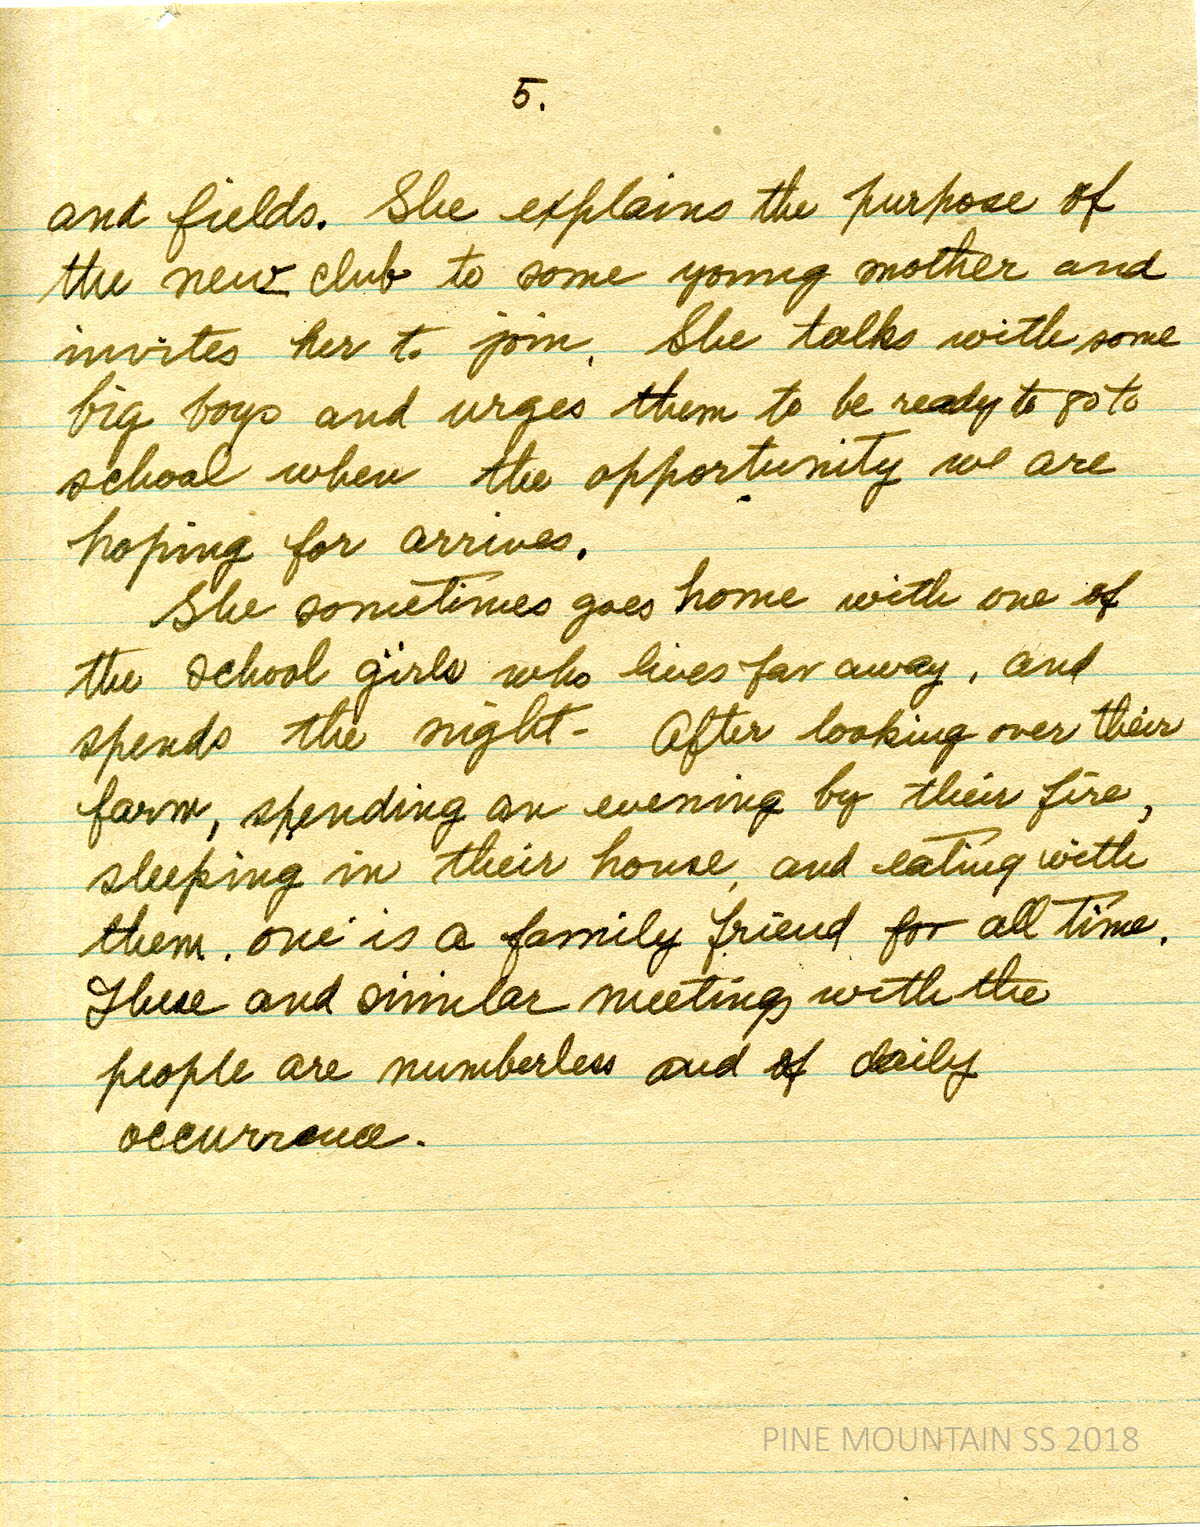 5.
and fields. She explains the purpose of
the new club to some young mother and
invites her to join. She talks with some
big boys and urges them to be ready to go to
school when the opportunity we are
hoping for arrives.
She sometimes goes home with one of
the school girls who lives far away, and
spends the night - After looking over their
farm, spending an evening by their fire,
sleeping in their house, and eating with
them. one is a family friend for all time.
These and similar meetings with the
people are numberless and of daily
occurrence.
PINE MOUNTAIN SS 2018